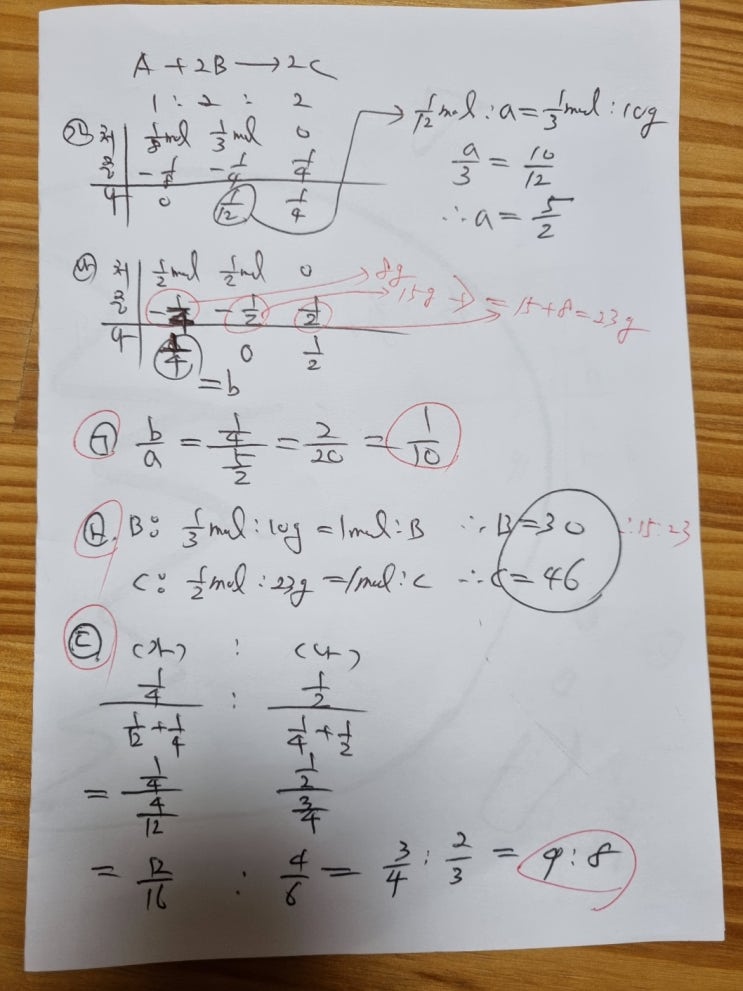 A + 2B → 2C
1 : 2 : 2
(가) 처 | 1/8 mol 1/3 mol 0
반 | -1/8 -1/4 1/4
후 | 0 1/12 1/4
→ 1/12 mol : a = 1/3 mol : 10g
a/3 = 10/12
∴ a = 5/2
(나) 처 | 1/2 mol 1/2 mol 0
반 | -1/4 -1/2 1/2
후 | 1/4 0 1/2
= b
8g
15g
= 15+8=23g
ㄱ b/a = (1/4)/(5/2) = 2/20 = 1/10
ㄴ. B: 1/3 mol : 10g = 1mol : B ∴ B = 30 ∴ 15:23
C: 1/2 mol : 23g = 1mol : C ∴ C = 46
ㄷ
(가) : (나)
(1/4)/(1/12 + 1/4) : (1/2)/(1/4 + 1/2)
= (1/4)/(4/12) (1/2)/(3/4)
= 12/16 : 4/6 = 3/4 : 2/3 = 9 : 8